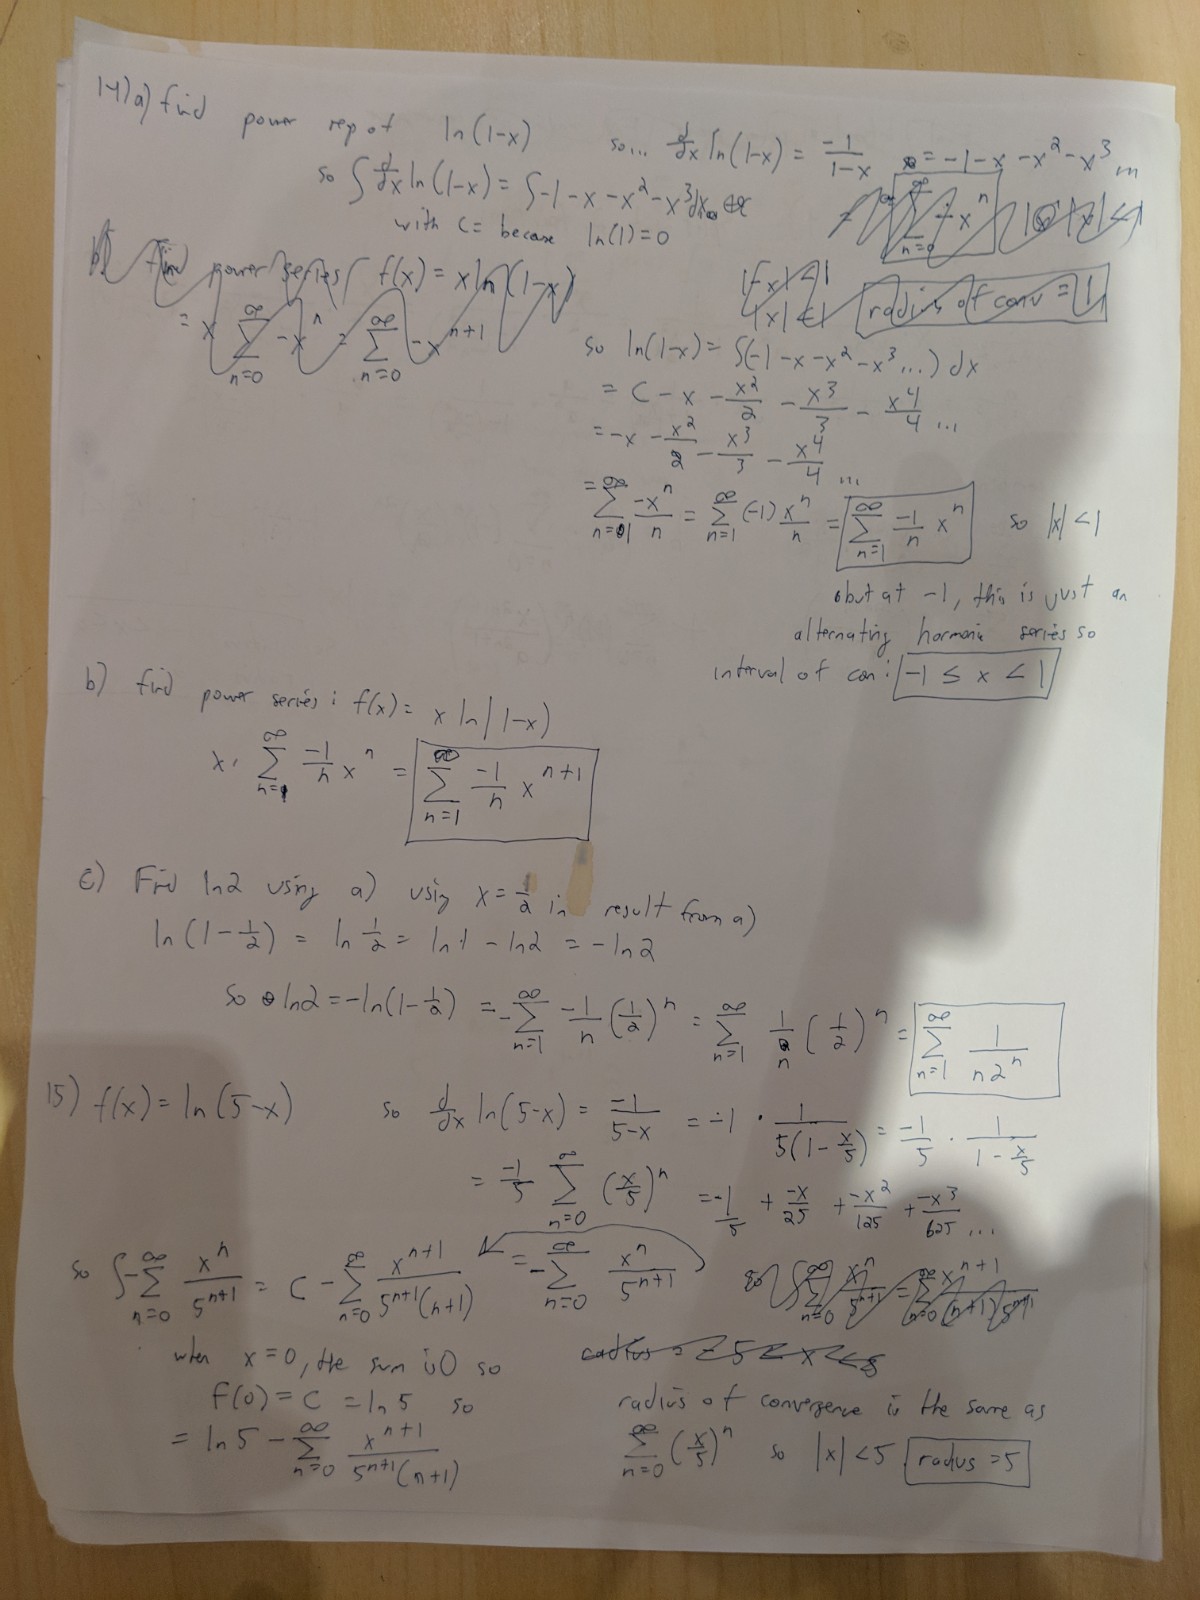 14) a) find power rep of ln(1-x) so... d/dx ln(1-x) = -1/(1-x) = -1-x-x²-x³...
so ∫ d/dx ln(1-x) = ∫-1-x-x²-x³...dx
with C= because ln(1)=0
= ∑_{n=0}^{∞} -x^n |x|<1
b) find power series f(x) = x ln(1-x)
= x ∑_{n=0}^{∞} -x^n = ∑_{n=0}^{∞} -x^{n+1}
|-x|<1
|x|<1 radius of conv = 1
so ln(1-x) = ∫(-1-x-x²-x³...) dx
= C - x - x²/2 - x³/3 - x⁴/4 ...
= -x - x²/2 - x³/3 - x⁴/4 ...
= ∑_{n=1}^{∞} -x^n/n = ∑_{n=1}^{∞} (-1) x^n/n = ∑_{n=1}^{∞} -1/n x^n so |x|<1
but at -1, this is just an
alternating harmonic series so
interval of con: -1 ≤ x < 1
b) find power series: f(x) = x ln(1-x)
x · ∑_{n=1}^{∞} -1/n x^n = ∑_{n=1}^{∞} -1/n x^{n+1}
c) Find ln2 using a) using x = 1/2 in result from a)
ln(1-1/2) = ln 1/2 = ln1 - ln2 = -ln2
so ln2 = -ln(1-1/2) = -∑_{n=1}^{∞} -1/n (1/2)^n = ∑_{n=1}^{∞} 1/n (1/2)^n = ∑_{n=1}^{∞} 1/(n2^n)
15) f(x) = ln(5-x) so d/dx ln(5-x) = -1/(5-x) = -1 · 1/(5(1-x/5)) = -1/5 · 1/(1-x/5)
= -1/5 ∑_{n=0}^{∞} (x/5)^n = -1/5 + -x/25 + -x²/125 + -x³/625 ...
= -∑_{n=0}^{∞} x^n/5^{n+1}
so ∫-∑_{n=0}^{∞} x^n/5^{n+1} = C - ∑_{n=0}^{∞} x^{n+1}/(5^{n+1}(n+1))
so ∫∑_{n=0}^{∞} x^n/5^{n+1} = ∑_{n=0}^{∞} x^{n+1}/((n+1)5^{n+1})
when x=0, the sum is 0 so
f(0) = C = ln5 so
= ln5 - ∑_{n=0}^{∞} x^{n+1}/(5^{n+1}(n+1))
radius = -5<x<5
radius of convergence is the same as
∑_{n=0}^{∞} (x/5)^n so |x|<5 radus = 5